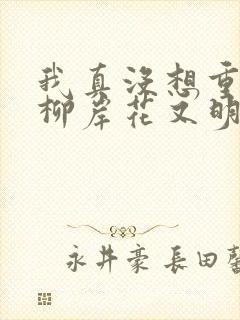 我真没想重
柳岸花又明
永井豪 長田馨